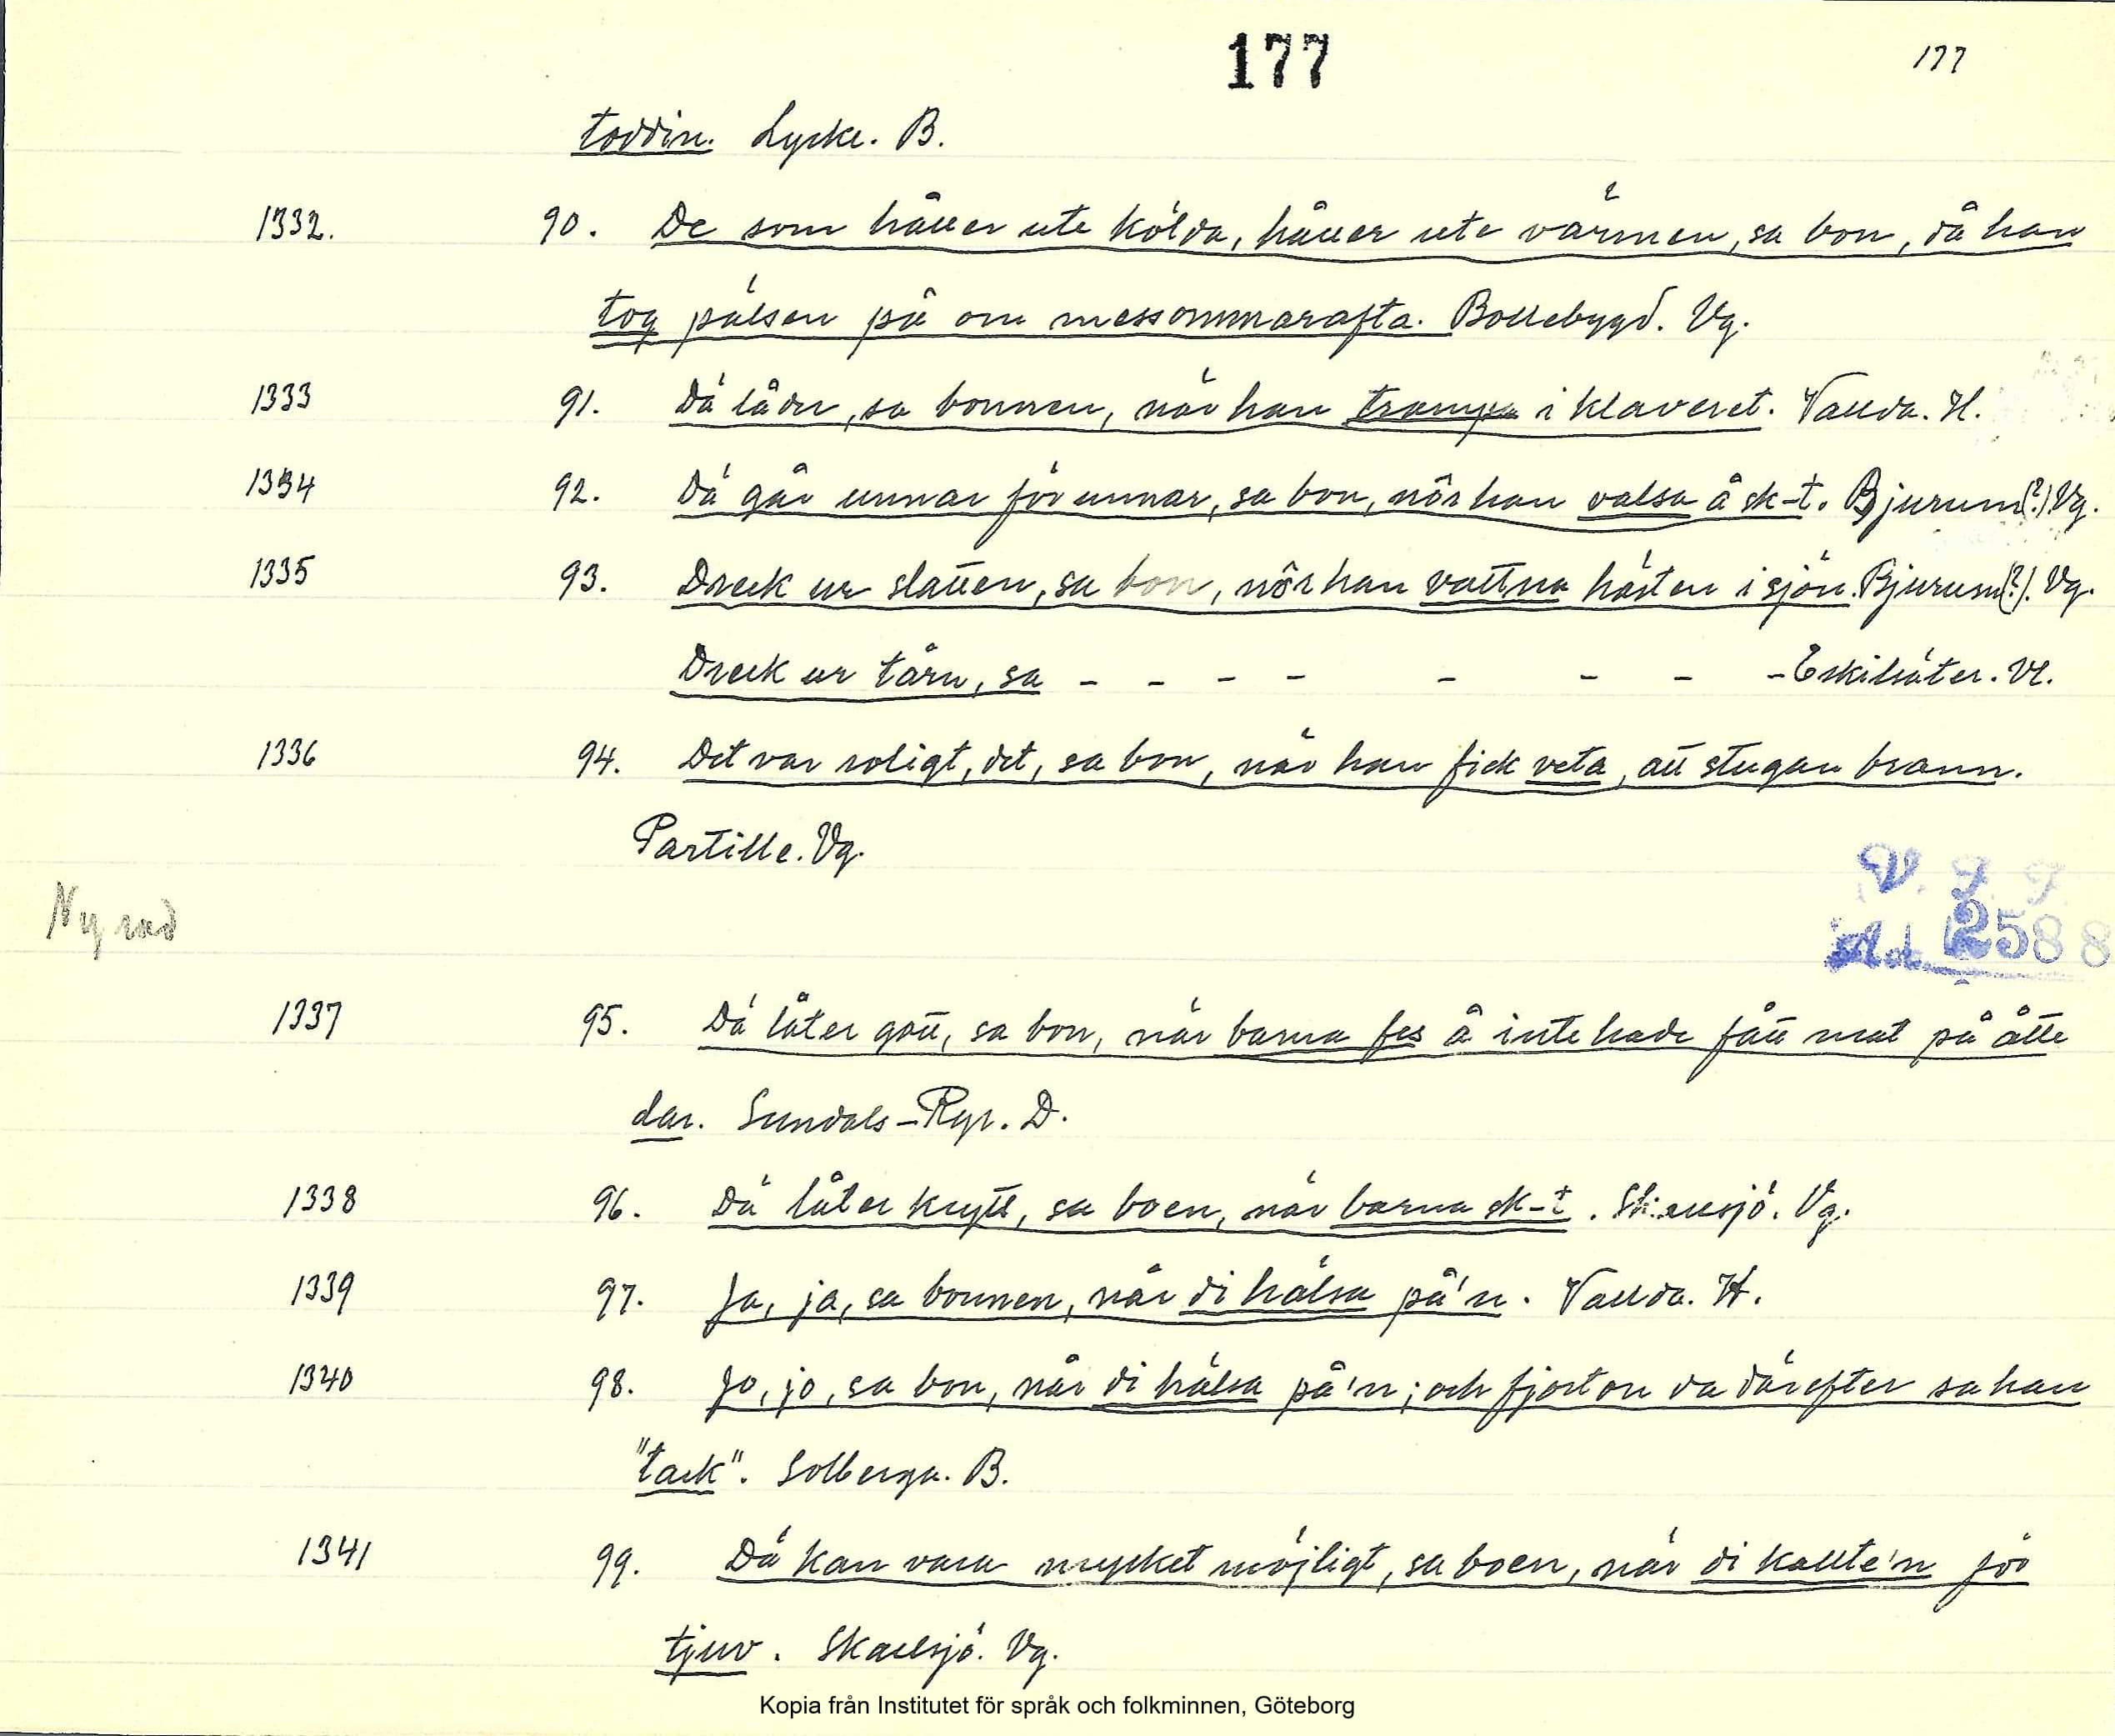 177
177
toddin. Lycke. B.
1332. 90. De som håller ute kölda, håller ute värmen, sa bon, då han
tog pälsen på om messommarafta. Bollebygd. Vg.
1333 91. Dä låder, sa bonnen, när han trampa i klaveret. Vallda. H.
1334 92. Dä går unnar för unnar, sa bon, nôr han valsa å sk-t. Bjurum(?) Vg.
1335 93. Dreck ur slatten, sa bon, nôr han vattna hästen i sjön. Bjurum(?). Vg.
Dreck ur tårn, sa - - - - - - - - Eskilsäter. Vl.
1336 94. Det var roligt, det, sa bon, när han fick veta, att stugan brann.
Partille. Vg.
Ny rad
V. F. F.
Ad. 2588
1337 95. Dä låter gott, sa bon, når barna fes å inte hade fått mat på åtte
dar. Sundals-Ryr. D.
1338 96. Dä låter krytt, sa boen, när barna sk-t. Vg.
1339 97. Ja, ja, sa bonnen, når di hälsa på'n. Vallda. H.
1340 98. Jo, jo, sa bon, når di hälsa på'n; och fjorton da därefter sa han
"tack". Solberga. B.
1341 99. Dä kan vara mycket möjligt, sa boen, när di kallte'n för
tjuv. Skallsjö. Vg.
Kopia från Institutet för språk och folkminnen, Göteborg